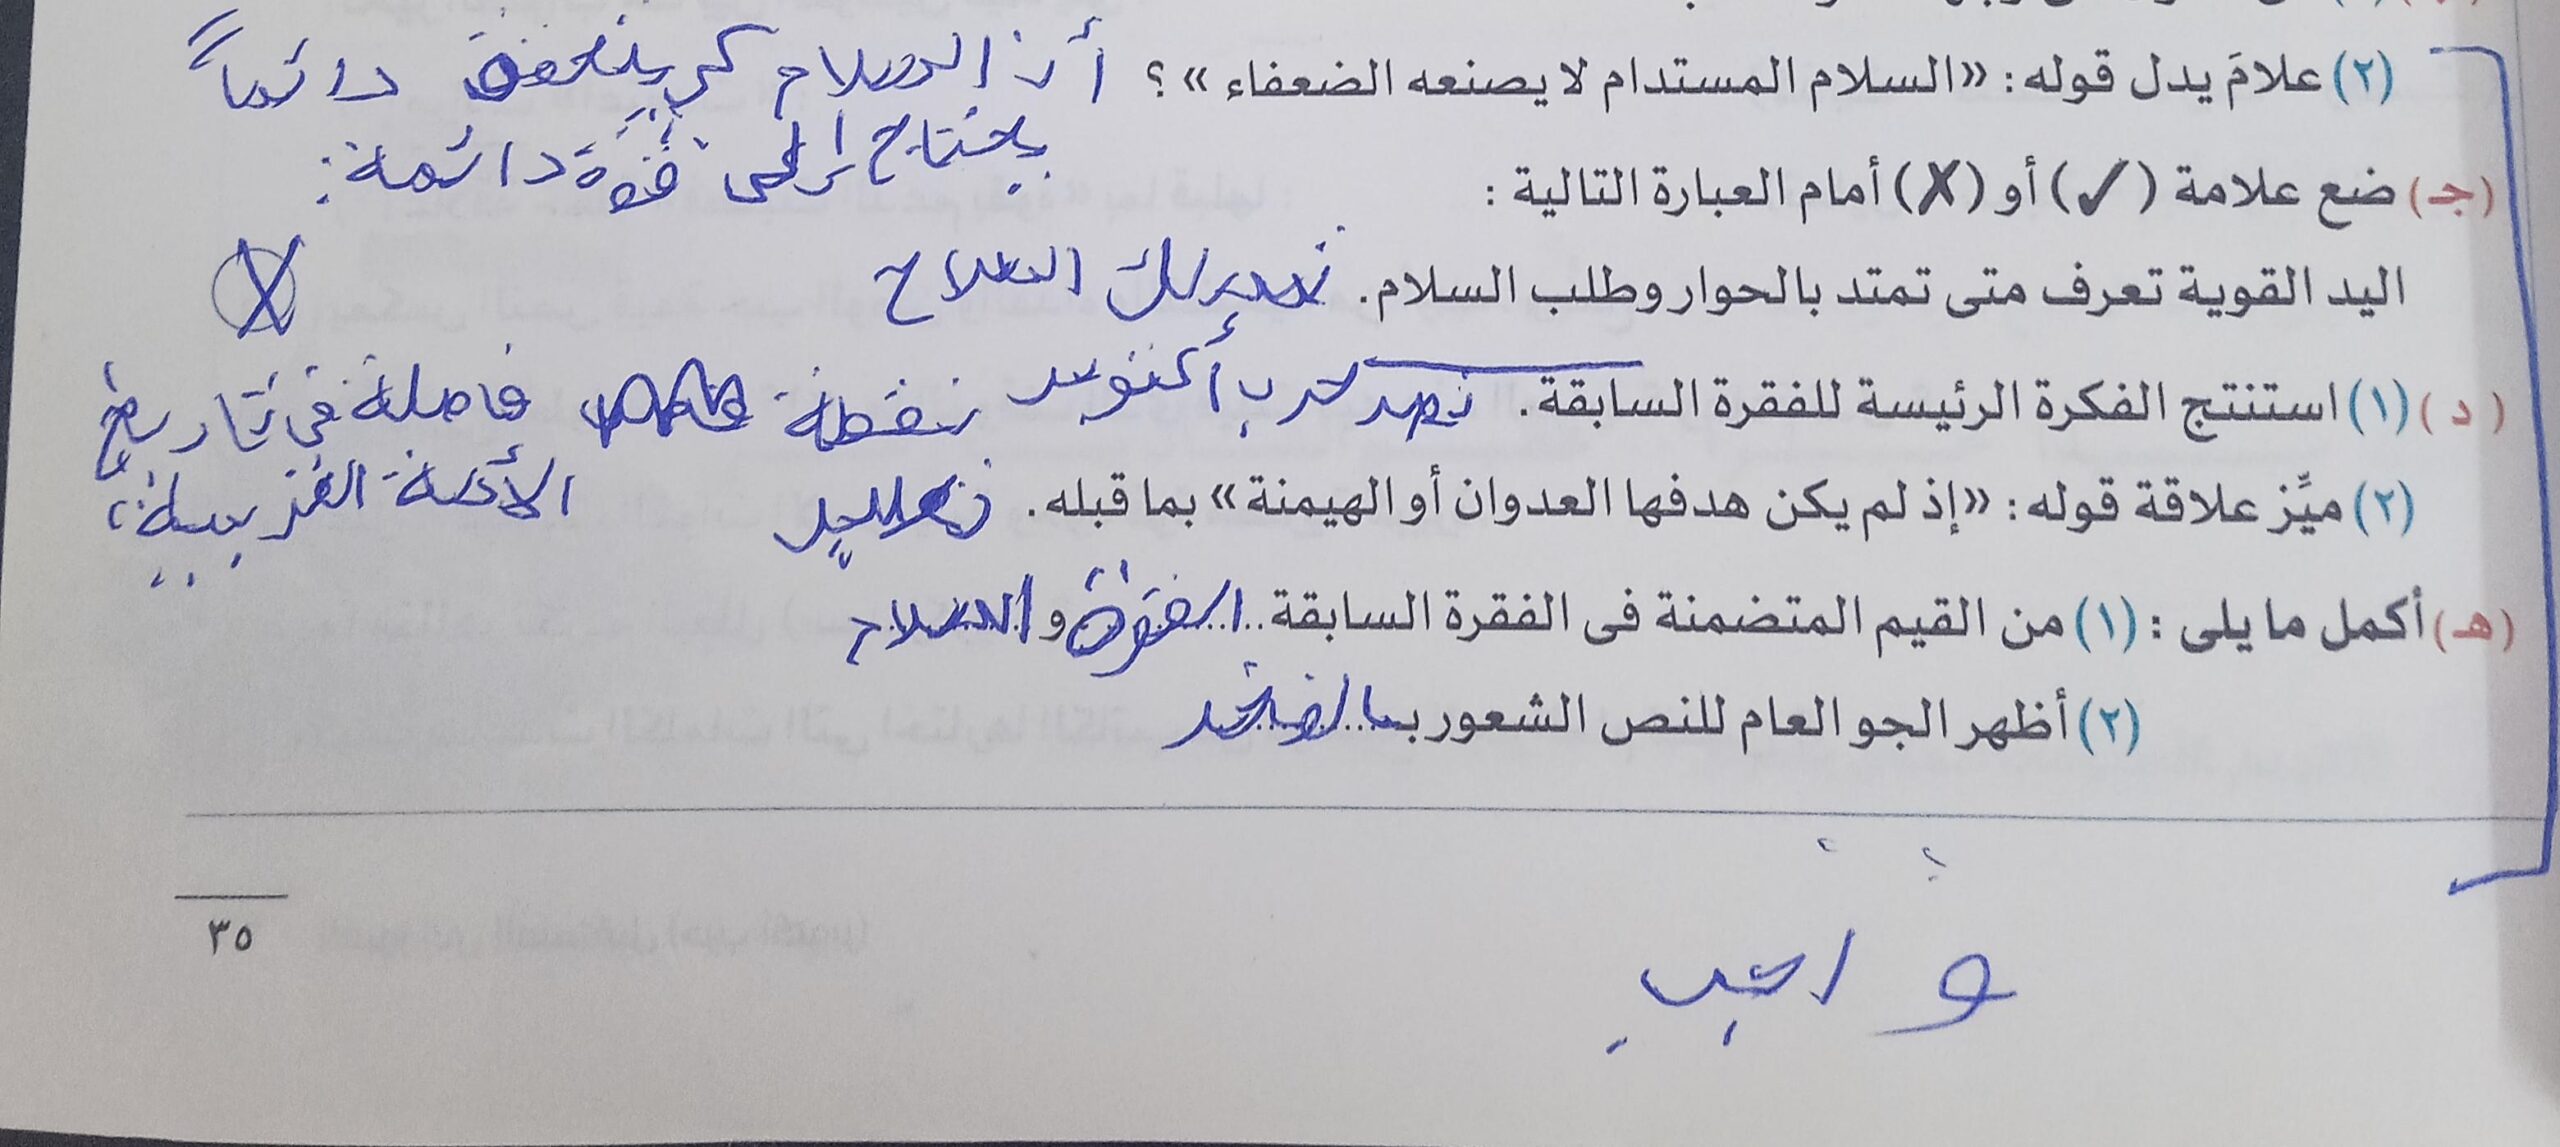 (٢) علامَ يدل قوله: «السلام المستدام لا يصنعه الضعفاء» ؟ أن السلام كي يتحقق دائماً
يحتاج إلى قوة دائمة.
(جـ) ضع علامة (✓) أو (✗) أمام العبارة التالية :
اليد القوية تعرف متى تمتد بالحوار وطلب السلام. السلاح X
(د) (١) استنتج الفكرة الرئيسة للفقرة السابقة. نصر حرب أكتوبر نقطة فاصلة في تاريخ
الأمة العربية.
(٢) ميِّز علاقة قوله: «إذ لم يكن هدفها العدوان أو الهيمنة» بما قبله. تعليل
(هـ) أكمل ما يلى : (١) من القيم المتضمنة فى الفقرة السابقة القوة و السلام
(٢) أظهر الجو العام للنص الشعور بـ الفخر
واجب
٣٥